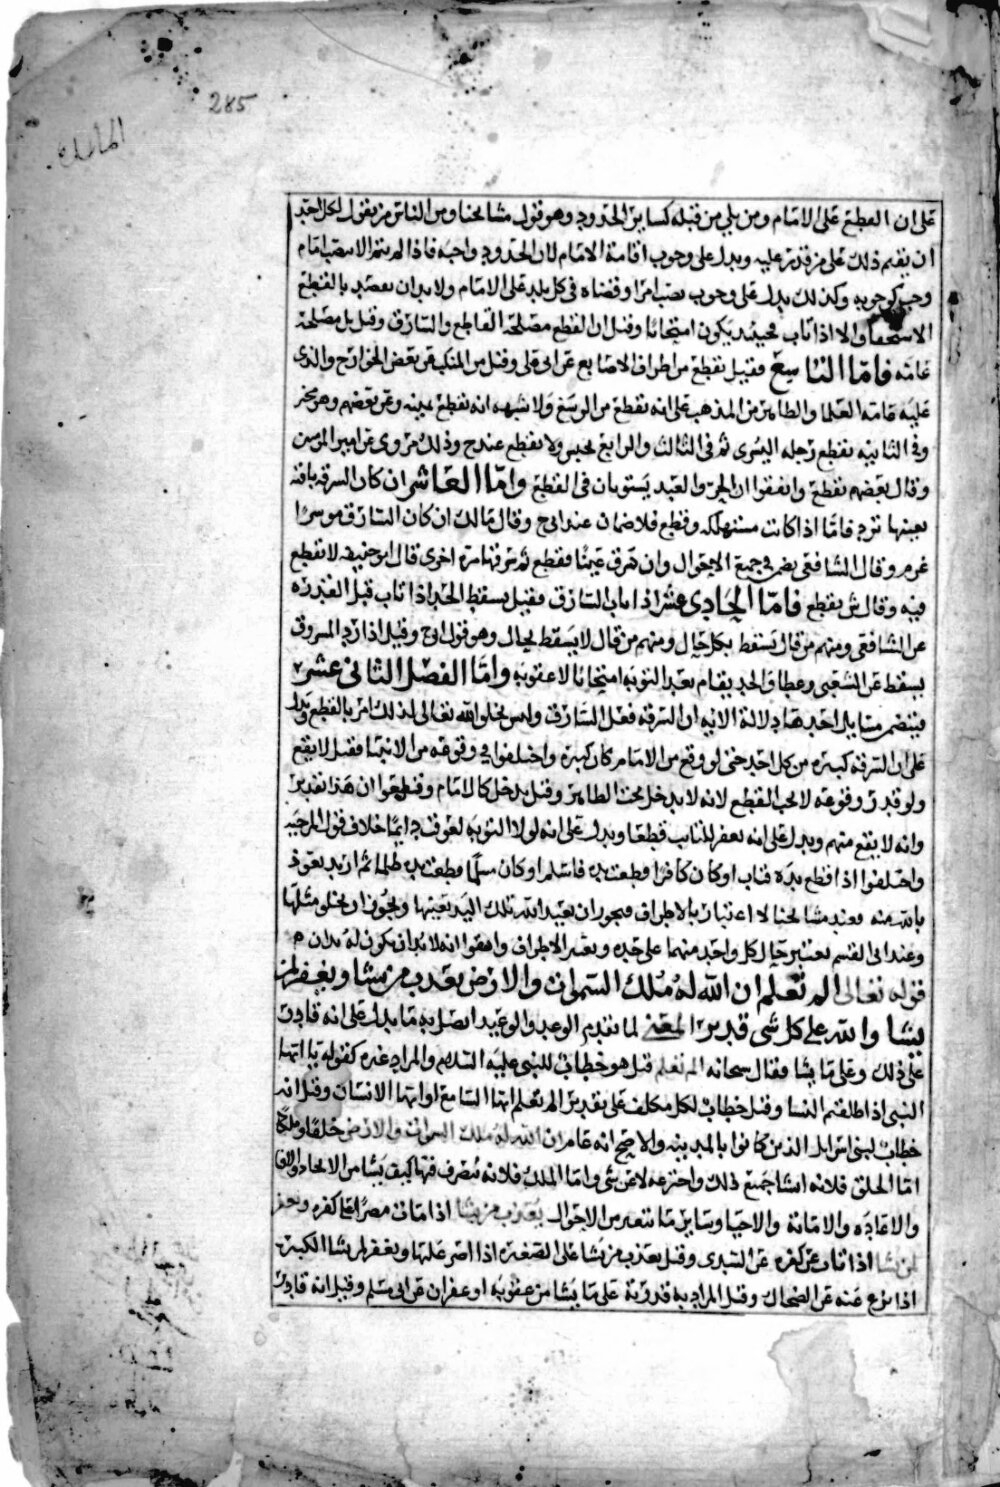 285
المائده
على ان القطع على الامام ومن يلي من قبله كساير الحدود وهو قول مشايخنا ومن الناس من يقول لكل احد
ان يقيم ذلك على من قدر عليه ويدل على وجوب اقامة الامام لان الحدود واجبه فاذا لم يتم الا بنصب امام
وجب كوجوبه وكذلك يدل على وجوب نصب امرا وقضاه في كل بلد على الامام ولا بد ان يقصد بالقطع
الاستحقاق الا اذا تاب فحينئذ يكون امتحانا وقيل ان القطع مصلحة القاطع والسارق وقيل بل مصلحة
عامه فاما التاسع فقيل تقطع من اطراف الاصابع عن علي وقيل من المنكب عن بعض الخوارج والذي
عليه عامه العلما والظاهر من المذهب على انه تقطع من الرسغ ولا شبهه انه تقطع يمينه وعن بعضهم
وفي الثانيه تقطع رجله اليسرى ثم في الثالث والرابع يحبس ولا يقطع عند ح وذلك مروي عن امير المومنين
وقال بعضهم تقطع واتفقوا ان الحر والعبد يستويان في القطع واما العاشر ان كان السرقه باقيه
بعينها ترد فاما اذا كانت مستهلكه وقطع فلا ضمان عند ابي ح وقال مالك ان كان السارق موسرا
غرم وقال الشافعي يضمن في جميع الاحوال وان سرق عينا فقطع ثم سرقها مرة اخرى قال ابو حنيفه لا تقطع
فيه وقال ش يقطع فاما الحادي عشر اذا تاب السارق فقيل يسقط الحد اذا تاب قبل القدره
عن الشافعي ومنهم من قال يسقط بكل حال ومنهم من قال لا يسقط بحال وهو قول ابي ح وقيل اذا رد المسروق
يسقط عن الشعبي وعطا والحد يقام بعد التوبه امتحانا لا عقوبه واما الفصل الثاني عشر
فيتضمن مسايل احدها دلالة الايه ان السرقه فعل السارق وليس بخلق الله تعالى لذلك امر بالقطع ويدل
على ان السرقه كبيره من كل احد حتى لو وقع من الامام كان كبيره واختلفوا في وقوعه من الانبيا فقيل لا يقع
ولو قدر وقوعه لا يجب القطع لانه لا يدخل تحت الظاهر وقيل يدخل كالامام وقطعوا ان هذا تقدير
وانه لا يقع منهم ويدل على انه يغفر للتايب قطعا ويدل على انه لولا التوبه لعوقب دايما خلاف قول المرجيه
واختلفوا اذا قطع يده فتاب او كان كافرا فقطعت يده فاسلم او كان مسلما فقطعت يده ظلما ثم ارتد نعوذ
بالله منه فعند مشايخنا لا اعتبار بالاطراف فيجوز ان يعيد الله تلك اليد بعينها ويجوز ان يخلق مثلها
وعند ابي القسم يعتبر حال كل واحد منهما على حده ويعتبر الاطراف واتفقوا انه لا بد ان يكون له يدان
قوله تعالى الم تعلم ان الله له ملك السموات والارض يعذب من يشا ويغفر لمن
يشا والله على كل شي قدير المعنى لما تقدم الوعد والوعيد اتصل به ما يدل على انه قادر
على ذلك وعلى ما يشا فقال سبحانه الم تعلم قيل هو خطاب للنبي عليه السلام والمراد غيره كقوله يا ايها
النبي اذا طلقتم النسا وقيل خطاب لكل مكلف على تقدير الم تعلم ايها السامع او ايها الانسان وقيل انه
خطاب لبني اسرايل الذين كانوا بالمدينه والاصح انه عام ان الله له ملك السموات والارض خلقا وملكا
اما الخلق فلانه انشا جميع ذلك واخترعه لا عن شي واما الملك فلانه تصرف فيها كيف يشا من الايجاد والافنا
والاعاده والاماتة والاحيا وساير ما يتغير من الاحوال يعذب من يشا اذا مات مصرا على كفره ويغفر
لمن يشا اذا تاب عن كفره عن السدي وقيل يعذب من يشا على الصغيره اذا اصر عليها ويغفر لمن يشا الكبيره
اذا نزع عنه عن الضحاك وقيل المراد به قدرته على ما يشا من عقوبه او غفران عن ابي مسلم وقيل انه قادر